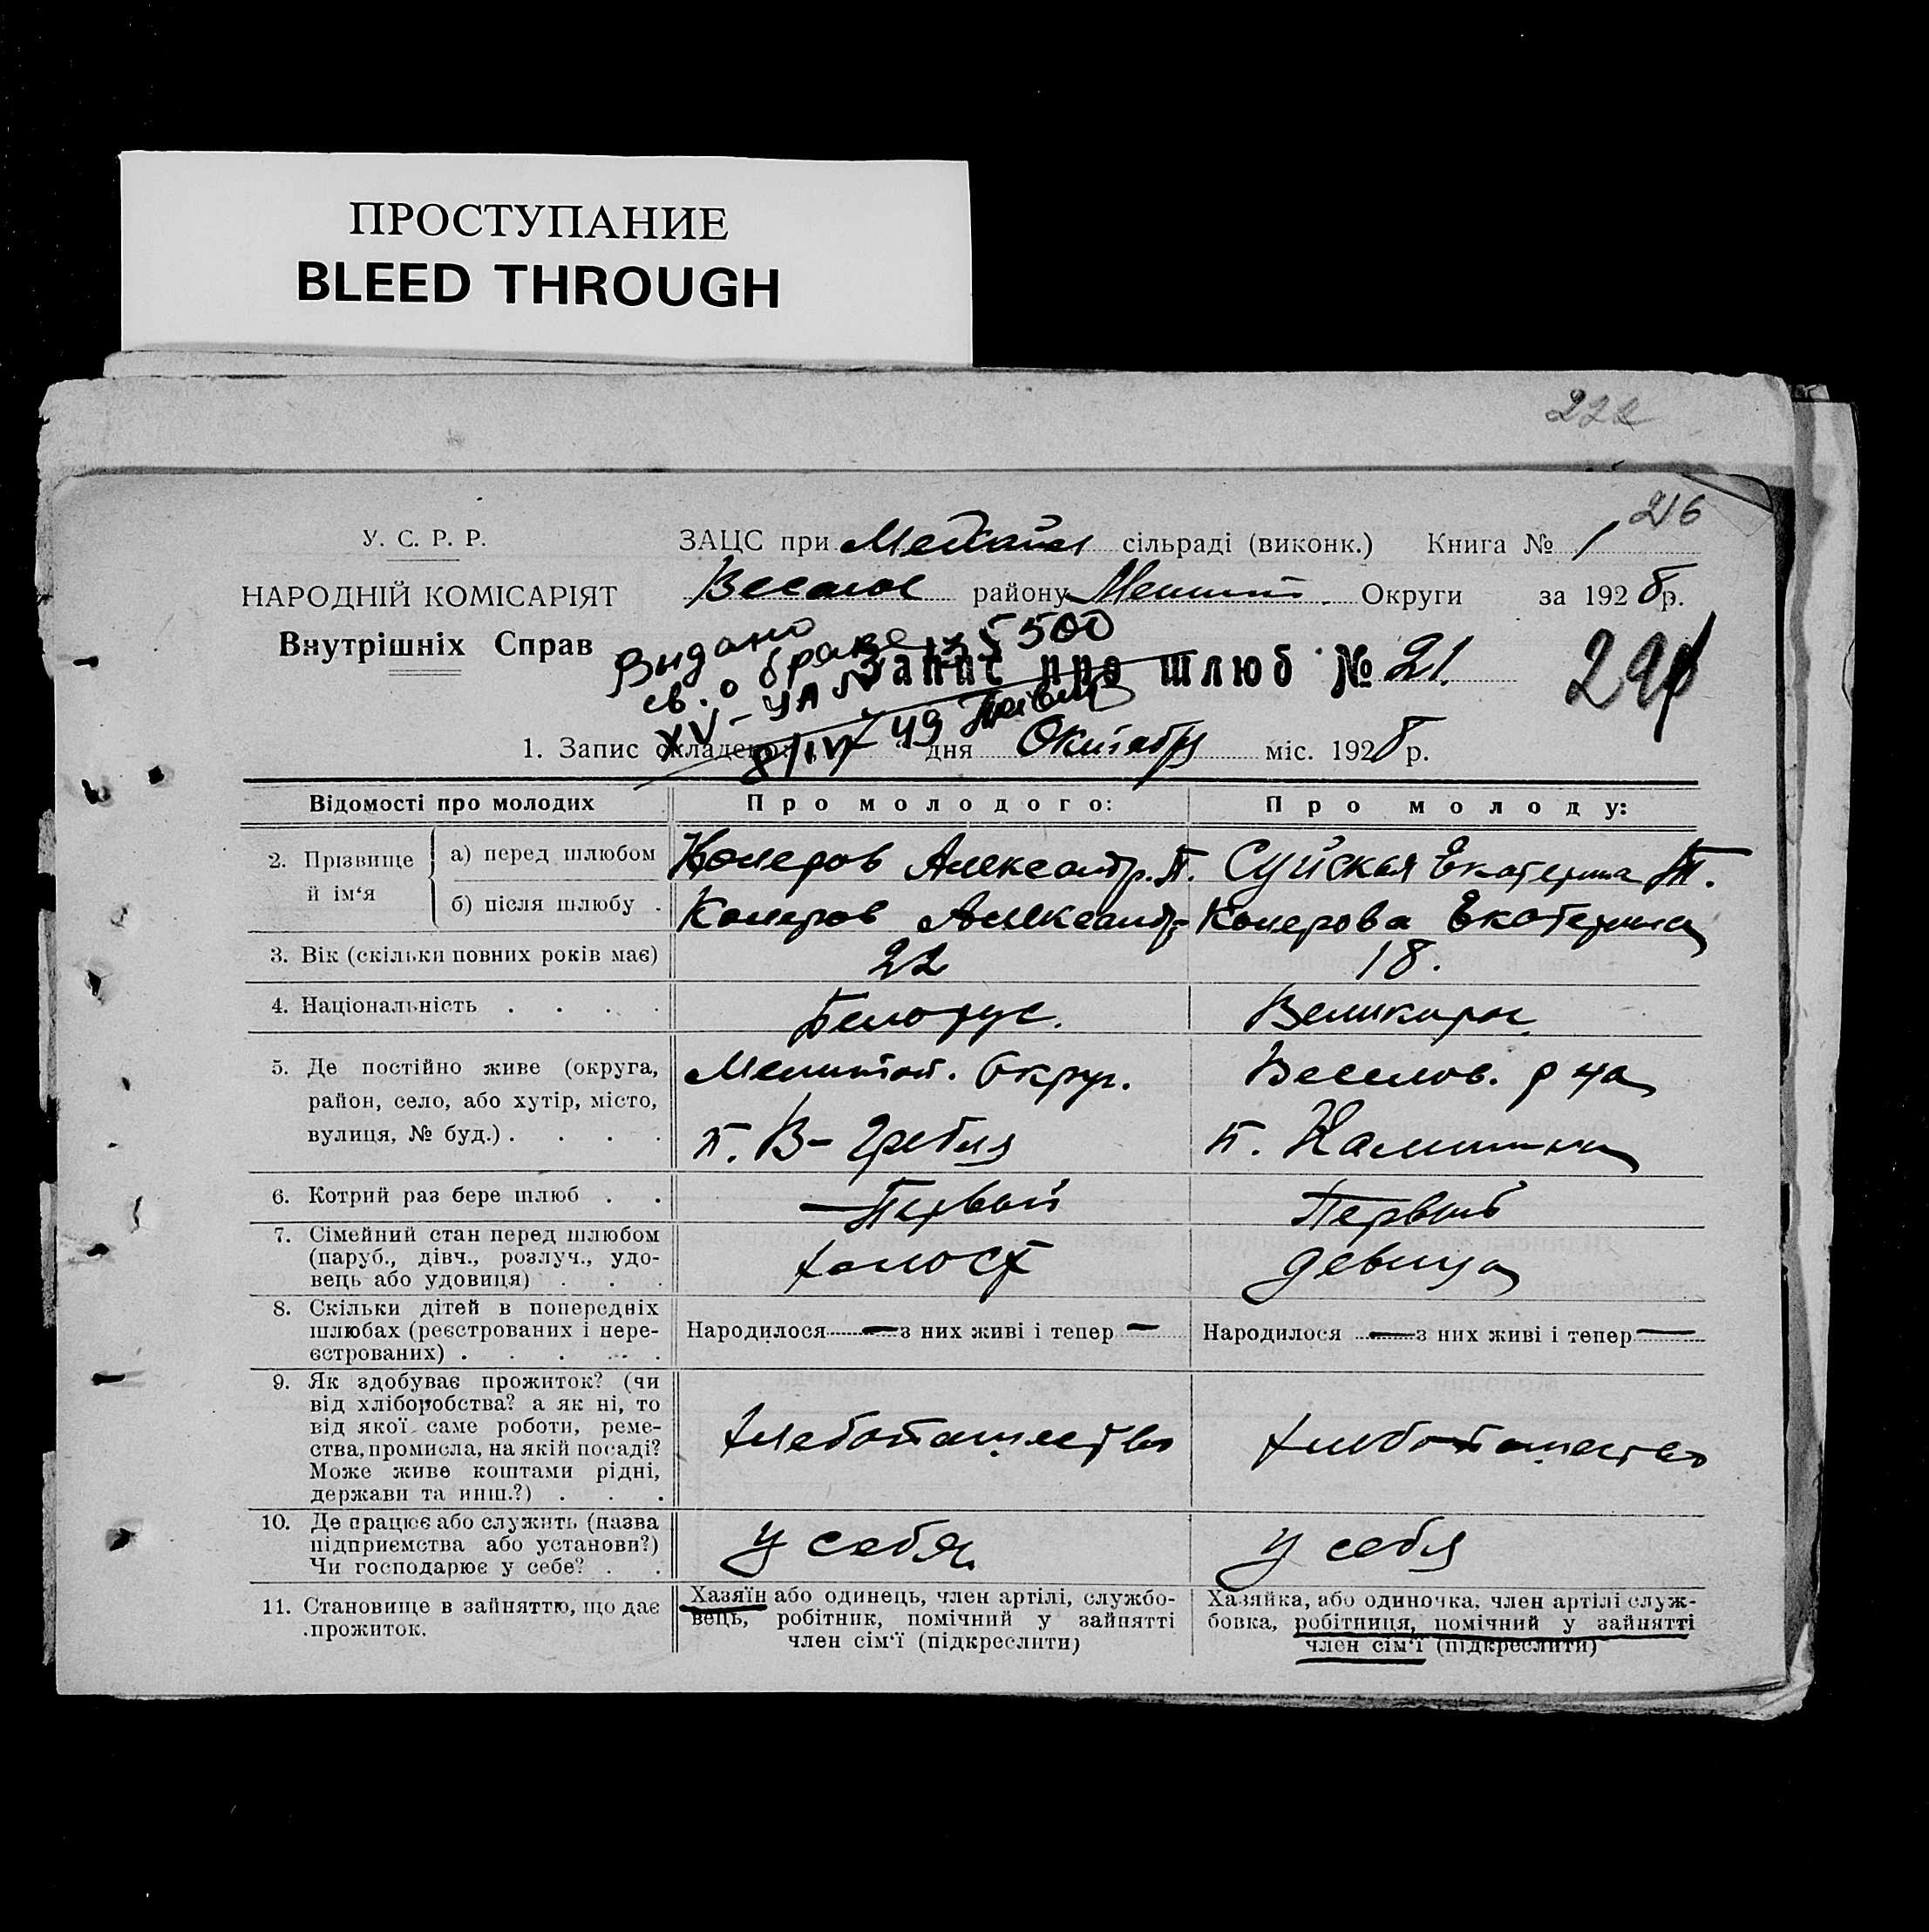 ПРОСТУПАНИЕ
BLEED THROUGH
222
216
У. С. Р. Р.
ЗАЦС при сільраді (виконк.) Книга № 1
НАРОДНІЙ КОМІСАРІЯТ
району Округи за 1928 р.
Внутрішніх Справ
Видано
св. о браке
5500
Запис про шлюб № 21.
XV-УА №
1. Запис складено: дня Октября міс. 1928 р.
8/IV 49
Відомості про молодих
Про молодого:
Про молоду:
2. Прізвище й ім‘я
а) перед шлюбом
Комеров Александр. П.
Суйская Екатерина Т.
б) після шлюбу .
Комеров Александр
Комерова Екатерина
3. Вік (скільки повних років має)
22
18.
4. Національність . . . .
Белорус.
Великорос.
5. Де постійно живе (округа,
район, село, або хутір, місто,
вулиця, № буд.) . . . .
Мелитоп. Округ.
п. В-Гребля
Веселов. р на
п. Калинин
6. Котрий раз бере шлюб . .
Первый
Первый
7. Сімейний стан перед шлюбом
(паруб., дівч., розлуч., удо-
вець або удовиця) . . .
холост
девица
8. Скільки дітей в попередніх
шлюбах (реєстрованих і нере-
єстрованих) . . . . .
Народилося — з них живі і тепер —
Народилося — з них живі і тепер —
9. Як здобуває прожиток? (чи
від хліборобства? а як ні, то
від якої саме роботи, реме-
ства, промисла, на якій посаді?
Може живе коштами рідні,
держави та инш.?) . . .
хлебопашество
хлебопашество
10. Де працює або служить (назва
підприємства або установи?)
Чи господарює у себе? . .
у себя
у себя
11. Становище в зайняттю, що дає
.прожиток.
Хазяїн або одинець, член артілі, службо-
вець, робітник, помічний у зайнятті
член сім‘ї (підкреслити)
Хазяйка, або одиночка, член артілі служ-
бовка, робітниця, помічний у зайнятті
член сім‘ї (підкреслити)